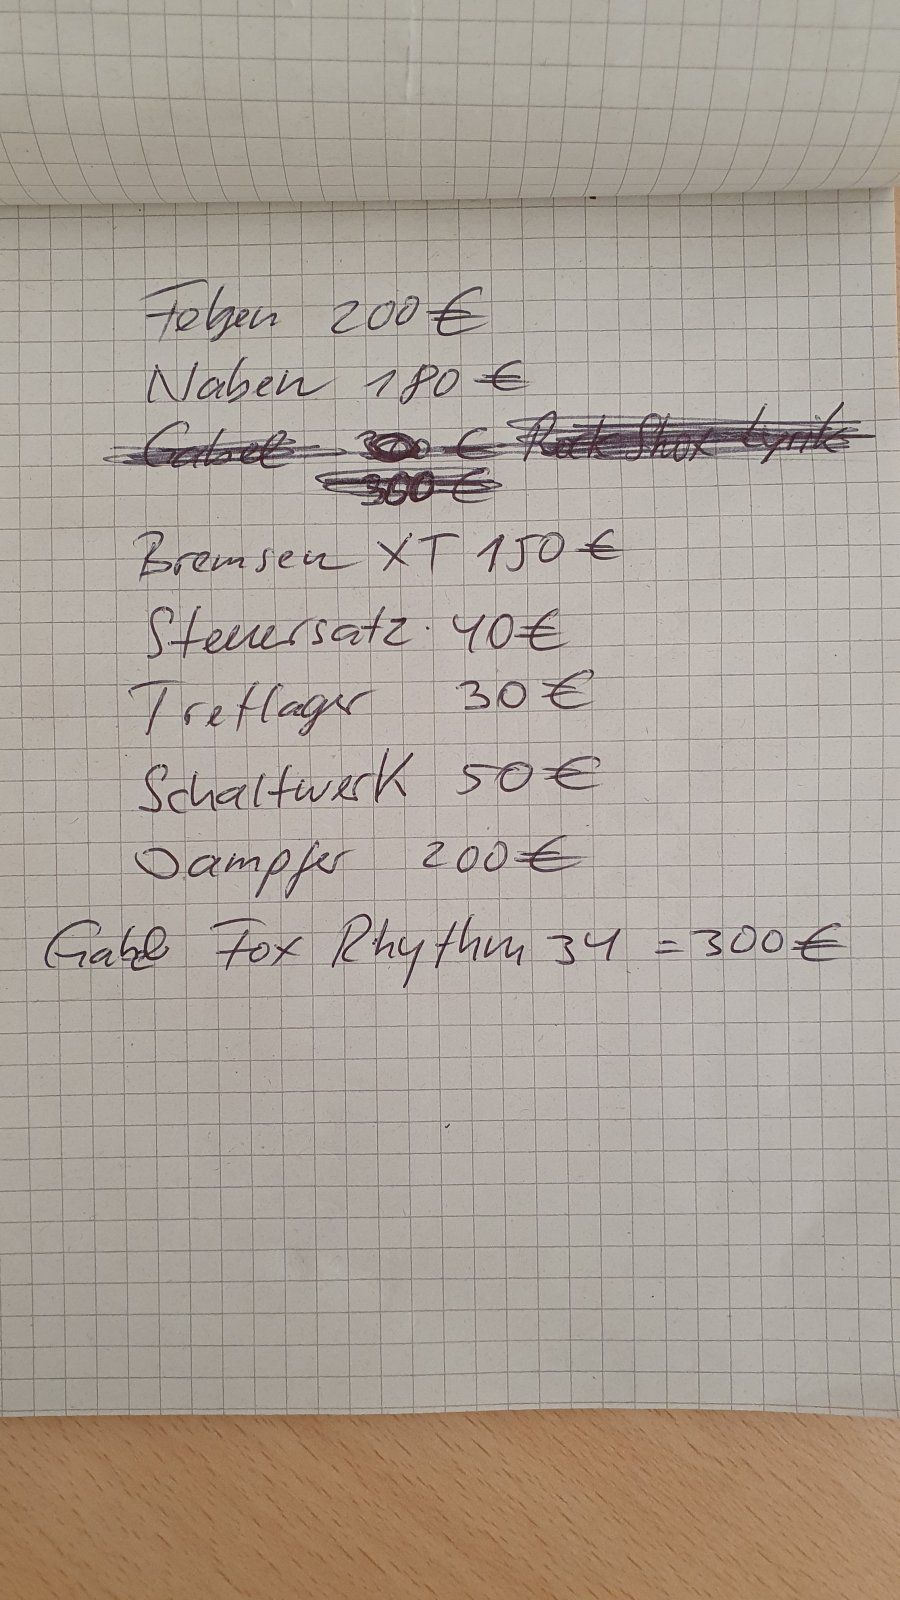 Felgen 200 €
Naben 180 €
Gabel 300 € Rock Shox Lyrik
300 €
Bremsen XT 150 €
Steuersatz 40 €
Tretlager 30 €
Schaltwerk 50 €
Dämpfer 200 €
Gabel Fox Rhythm 34 = 300 €